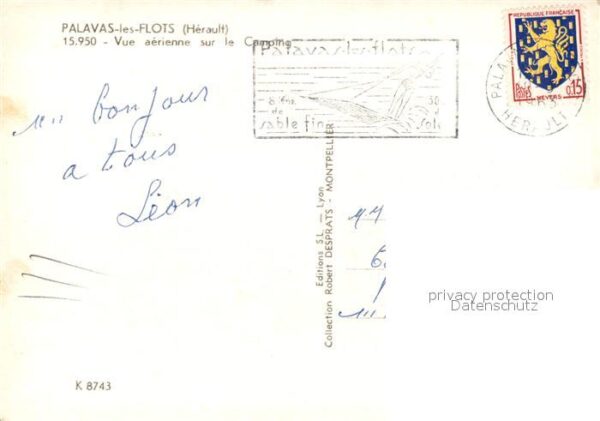 PALAVAS-les-FLOTS (Hérault)
15.950 - Vue aérienne sur le Camping
Palavas-les-flots
8 Km
de
sable fin
REPUBLIQUE FRANÇAISE
Postes
0,15
NEVERS
PALA
HERAULT
un bonjour
a tous
Léon
Editions S.L. — Lyon
Collection Robert DESPRATS - MONTPELLIER
privacy protection
Datenschutz
K 8743